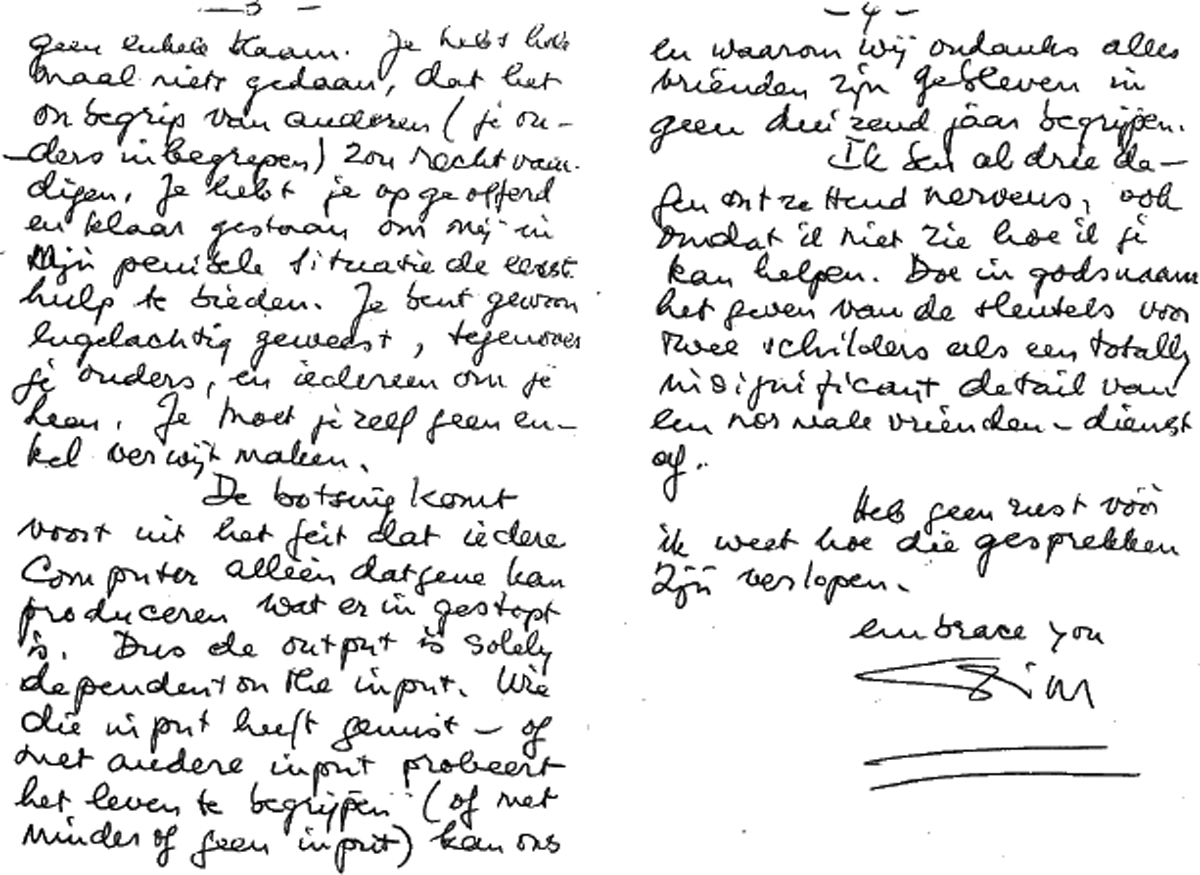 — 3 —
geen enkele blaam. Je hebt hele
maal niets gedaan, dat het
onbegrip van anderen (je ou-
ders inbegrepen) zou rechtvaar-
digen. Je hebt je opgeofferd
en klaar gestaan om mij in
mijn penibele situatie de eerste
hulp te bieden. Je bent gewoon
engelachtig geweest, tegenover
je ouders, en iedereen om je
heen. Je moet jezelf geen en-
kel verwijt maken.
De botsing komt
voort uit het feit dat iedere
Computer alléén datgene kan
produceren wat er in gestopt
is. Dus de output is solely
dependent on the input. Wie
die input heeft gemist – of
met andere input probeert
het leven te begrijpen (of met
minder of geen input) kan ons
— 4 —
en waarom wij ondanks alles
vrienden zijn gebleven in
geen duizend jaar begrijpen.
Ik ben al drie da-
gen ontzettend nerveus, ook
omdat ik niet zie hoe ik je
kan helpen. Doe in godsnaam
het geven van de sleutels voor
twee schilders als een totally
insignificant detail van
een normale vrienden-dienst
af.
Heb geen rust vóór
ik weet hoe die gesprekken
zijn verlopen.
embrace you